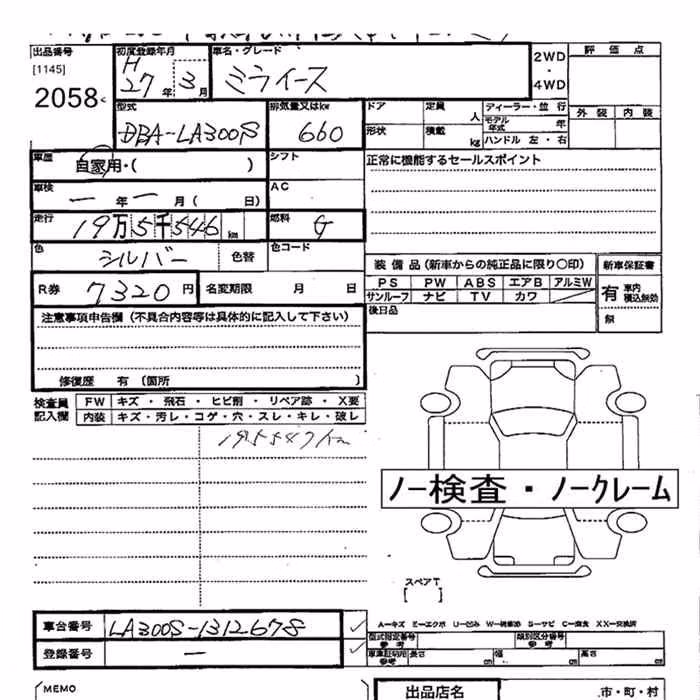 出品番号 初度登録年月 車名・グレード 評価点
[1145] H 2WD
2058 27年 3月 ミライース ・
4WD
型式 排気量又はkw ドア 定員 人 ディーラー・並行 外装 内装
DBA-LA300S 660 モデル年式 年
形状 積載 kg ハンドル 左・右
車歴 自家用・( ) シフト 正常に機能するセールスポイント
車検 ー年ー月( 日) AC
走行 19万5千546km 燃料 G
色 シルバー 色替 色コード
装備品(新車からの純正品に限り〇印) 新車保証書
R券 7320円 名変期限 月 日 PS PW ABS エアB アルミW 有 車内積込無効
サンルーフ ナビ TV カワ
注意事項申告欄(不具合内容等は具体的に記入して下さい) 後日品 無
修復歴 有 〔箇所 〕
検査員 FW キズ・飛石・ヒビ割・リペア跡・X要
記入欄 内装 キズ・汚レ・コゲ・穴・スレ・キレ・破レ
195547km
ノー検査・ノークレーム
スペアT
[ ]
A−キズ E−エクボ U−凹み W−補修跡 S−サビ C−腐食 XX−交換済
車台番号 LA300S-1312678 型式指定番号 参考 類別区分番号 参考
登録番号 ー 車庫証明用 参考 長さ cm 幅 cm 高さ cm
MEMO 出品店名 市・町・村